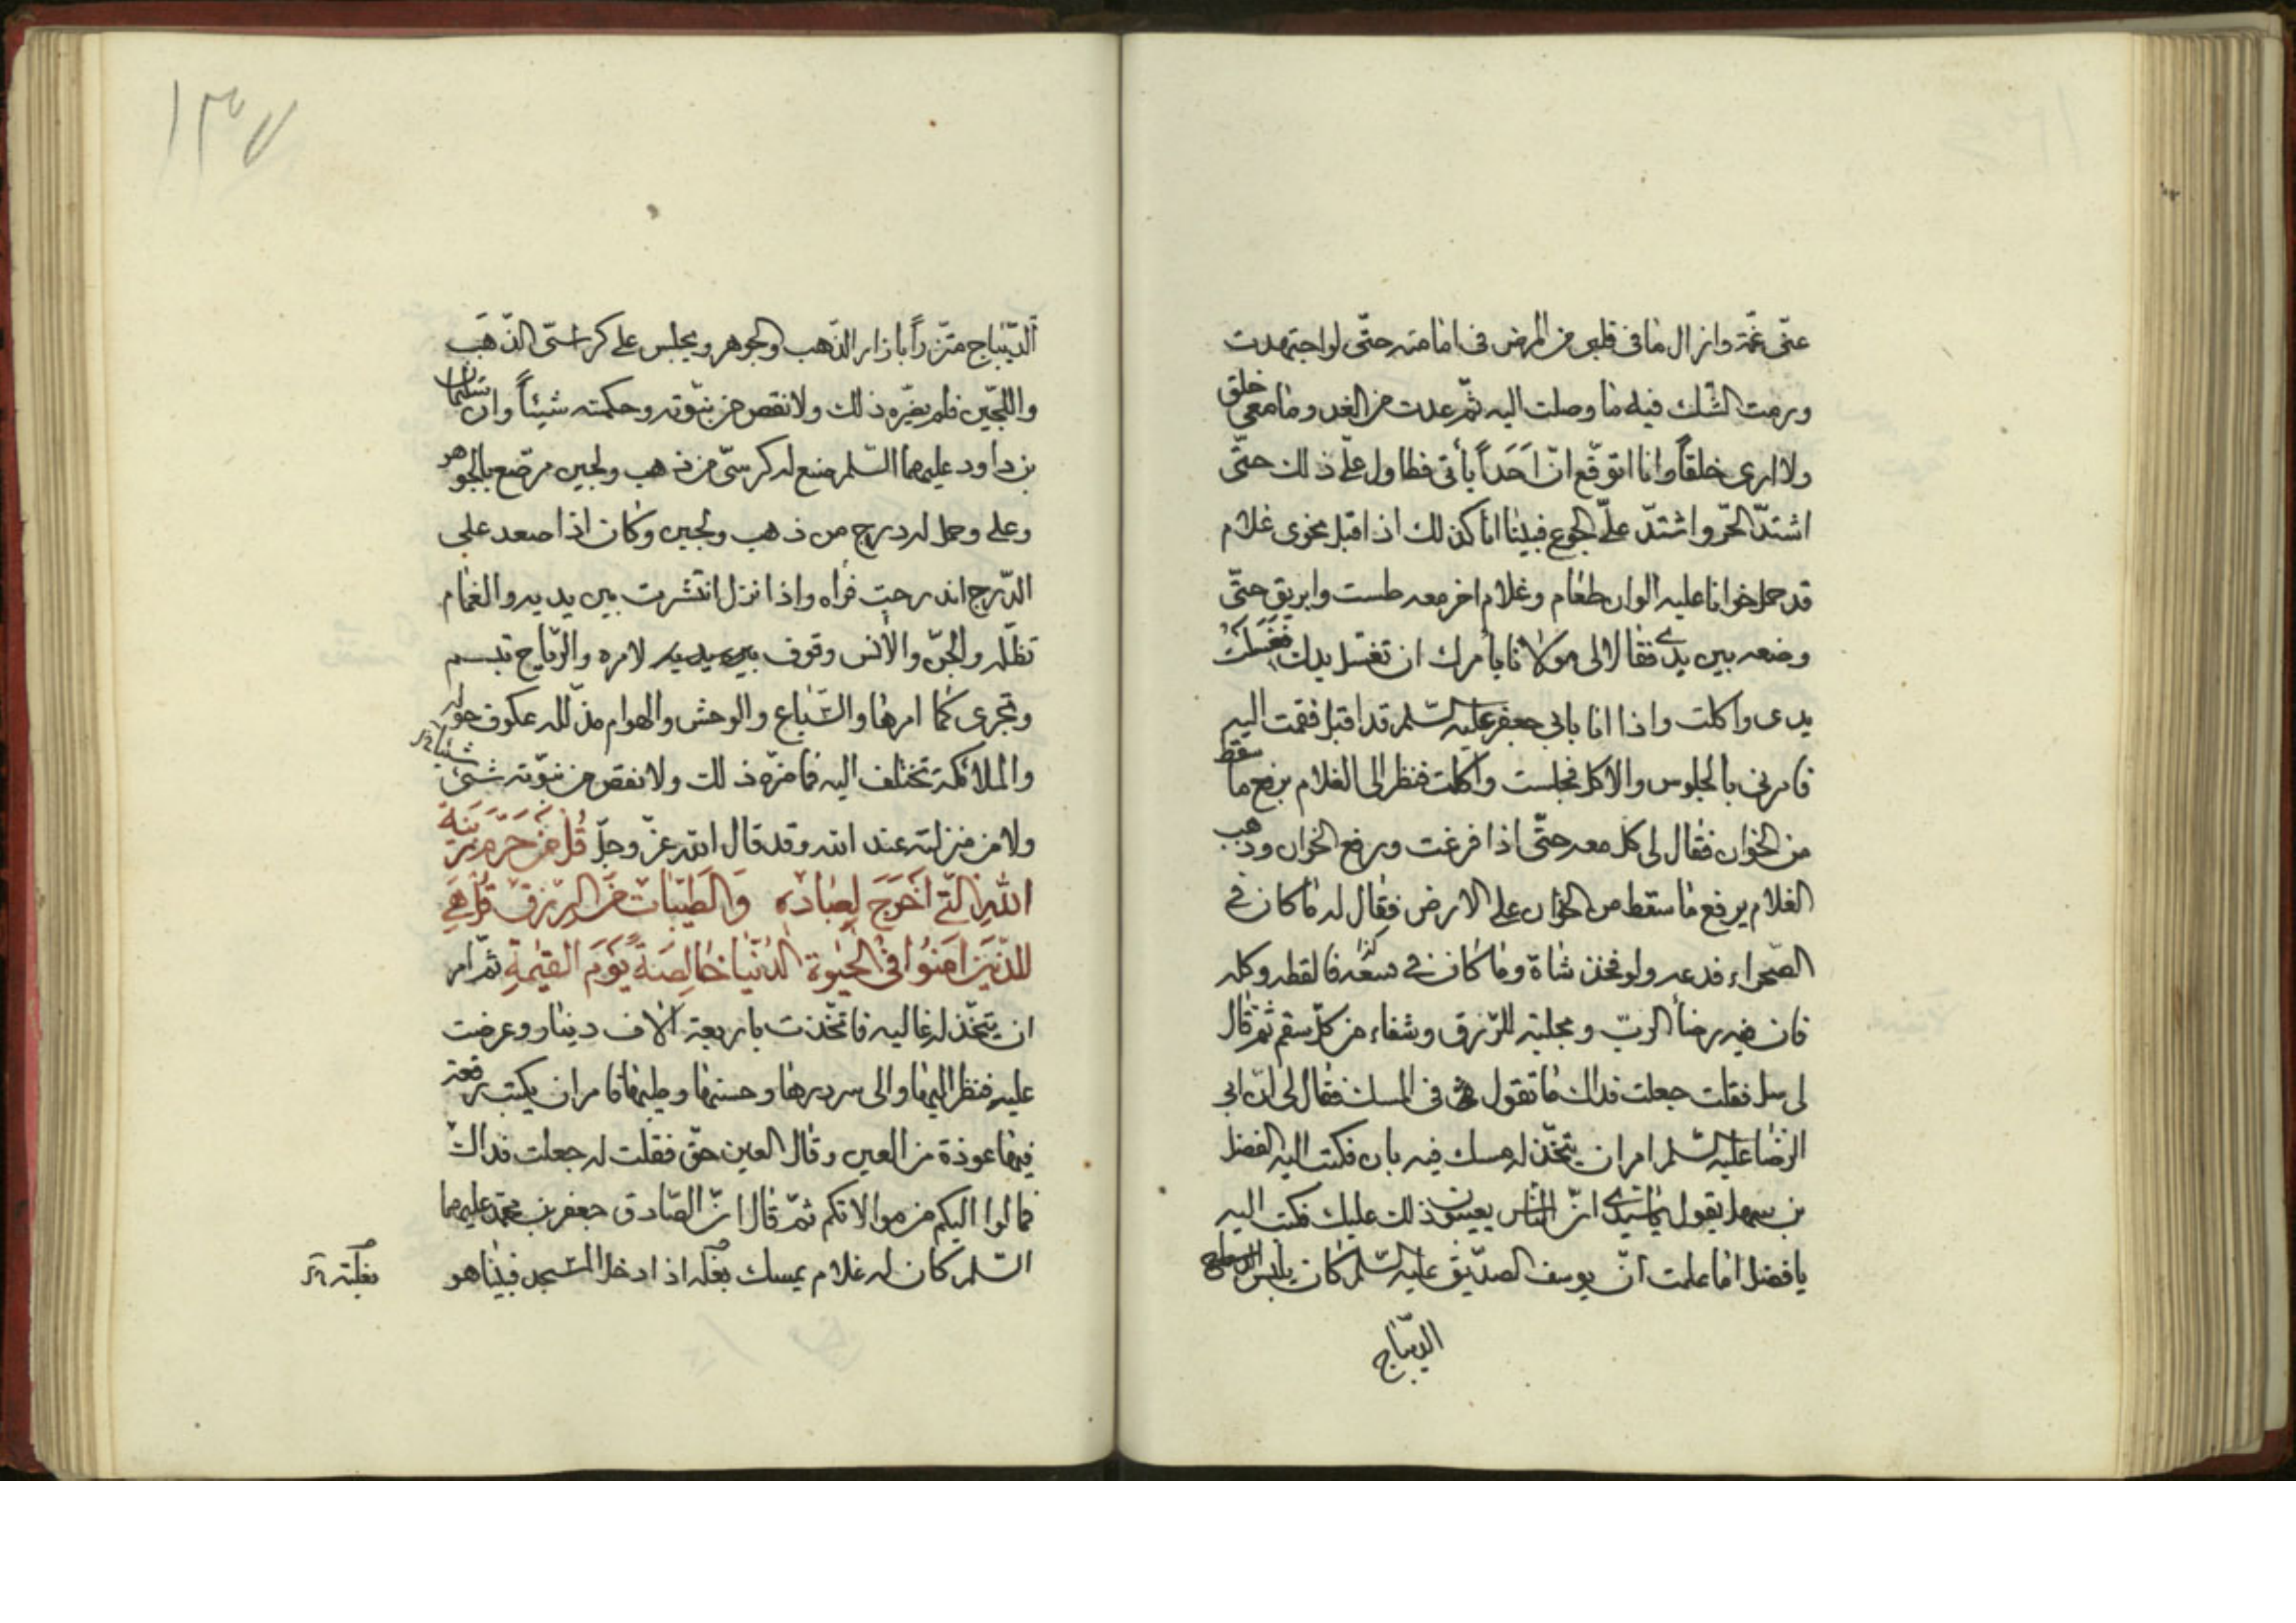 عنّى غمّة وازال ما فى قلبى من المرض فى امامته حتّى لو اجتهدت
ورمت الشّك فيه ما وصلت اليه ثمّ عدت من الغد وما معى خلق
ولا ارى خلقاً وانا اتوقّع انّ اَحَداً يأتى فطاول علّى ذلك حتّى
اشتدّ الحّر واشتدّ علّى الجوع فبينا انا كذلك اذ اقبل نحوى غلام
قد حمل خوانا عليه الوان طعام وغلام اخر معه طست وابريق حتّى
وضعه بين يدى فقالا لى مولانا يأمرك ان تغسل يدك فغسلت
يدى واكلت واذا انا بابى جعفر عليه السّلم قد اقبل فقمت اليه
فامرنى بالجلوس والاكل فجلست واكلت فنظر الى الغلام يرفع ما سقط
من الخوان فقال لى كل معه حتّى اذا فرغت ورفع الخوان وذهب
الغلام يرفع ما سقط من الخوان على الارض فقال له ما كان فى
الصّحراء فدعه ولو فخذ شاة وما كان فى فالقطه وكله
فان فيه رضأ الربّ ومجلبة للرّزق وشفاء من كلّ سقم ثمّ قال
لى سل فقلت جعلت فداك ما تقول فى المسك فقال لى انّ ابى
الرّضا عليه السّلم امر ان يتّخذ له مسك فيه بان فكتب اليه الفضل
بن سهل يقول يا سيّدى انّ النّاس يعيبون ذلك عليك فكتب اليه
يا فضل اما علمت انّ يوسف الصدّيق عليه السّلم كان يلبس
الدّيباج
١٣٧
الدّيباج متّزراً بازار الذّهب والجوهر ويجلس على كراسىّ الذّهب
واللّجين فلم يضرّه ذلك ولا نقص من نبوّته وحكمته شيئاً وان سليمان
بن داود عليهما السّلم صنع له كرسىّ من ذهب ولجين مرصّع بالجوهر
وعلى وحمل له درج من ذهب ولجين وكان اذا صعد على
الدّرج اندرجت فراه واذا نزل انتشرت بين يديه والغمام
تظلّه والجنّ والأنس وقوف بين يديه لامره والرّياح تنسم
وتجرى كما امرها والسّباع والوحش والهوام مذلّله عكوف حوله
والملائكة تختلف اليه فما ضرّه ذلك ولا نقص من نبوّته شىئ
شيئا
ولا من منزلته عند الله وقد قال الله عزّ وجلّ قُل مَن حَرَّمَ زِينَةَ
اللهِ الَّتى اَخرَجَ لِعِبَادِه وَالطَّيِّبَات مِنَ الرِّزقِ قُل هِىَ
لِلَّذِينَ اٰمَنُوا فِى الحَيٰوةِ الدُّنيَا خَالِصَةً يَومَ القِيٰمَةِ ثمّ امر
ان يتّخذ له غاليه فاتّخذت باربعة آلاف دينار وعرضت
عليه فنظر اليها والى سررها وحسنها وطيبها فامر ان يكتب رقعة
فيها عوذة من العين وقال العين حقّ فقلت له جعلت فداك
فما لوا اليكم من موالاتكم ثمّ قال انّ الصّادق جعفر بن محمّد عليهما
السّلم كان له غلام يمسك بغله اذا دخل المسجد فبينا هو
بغلته